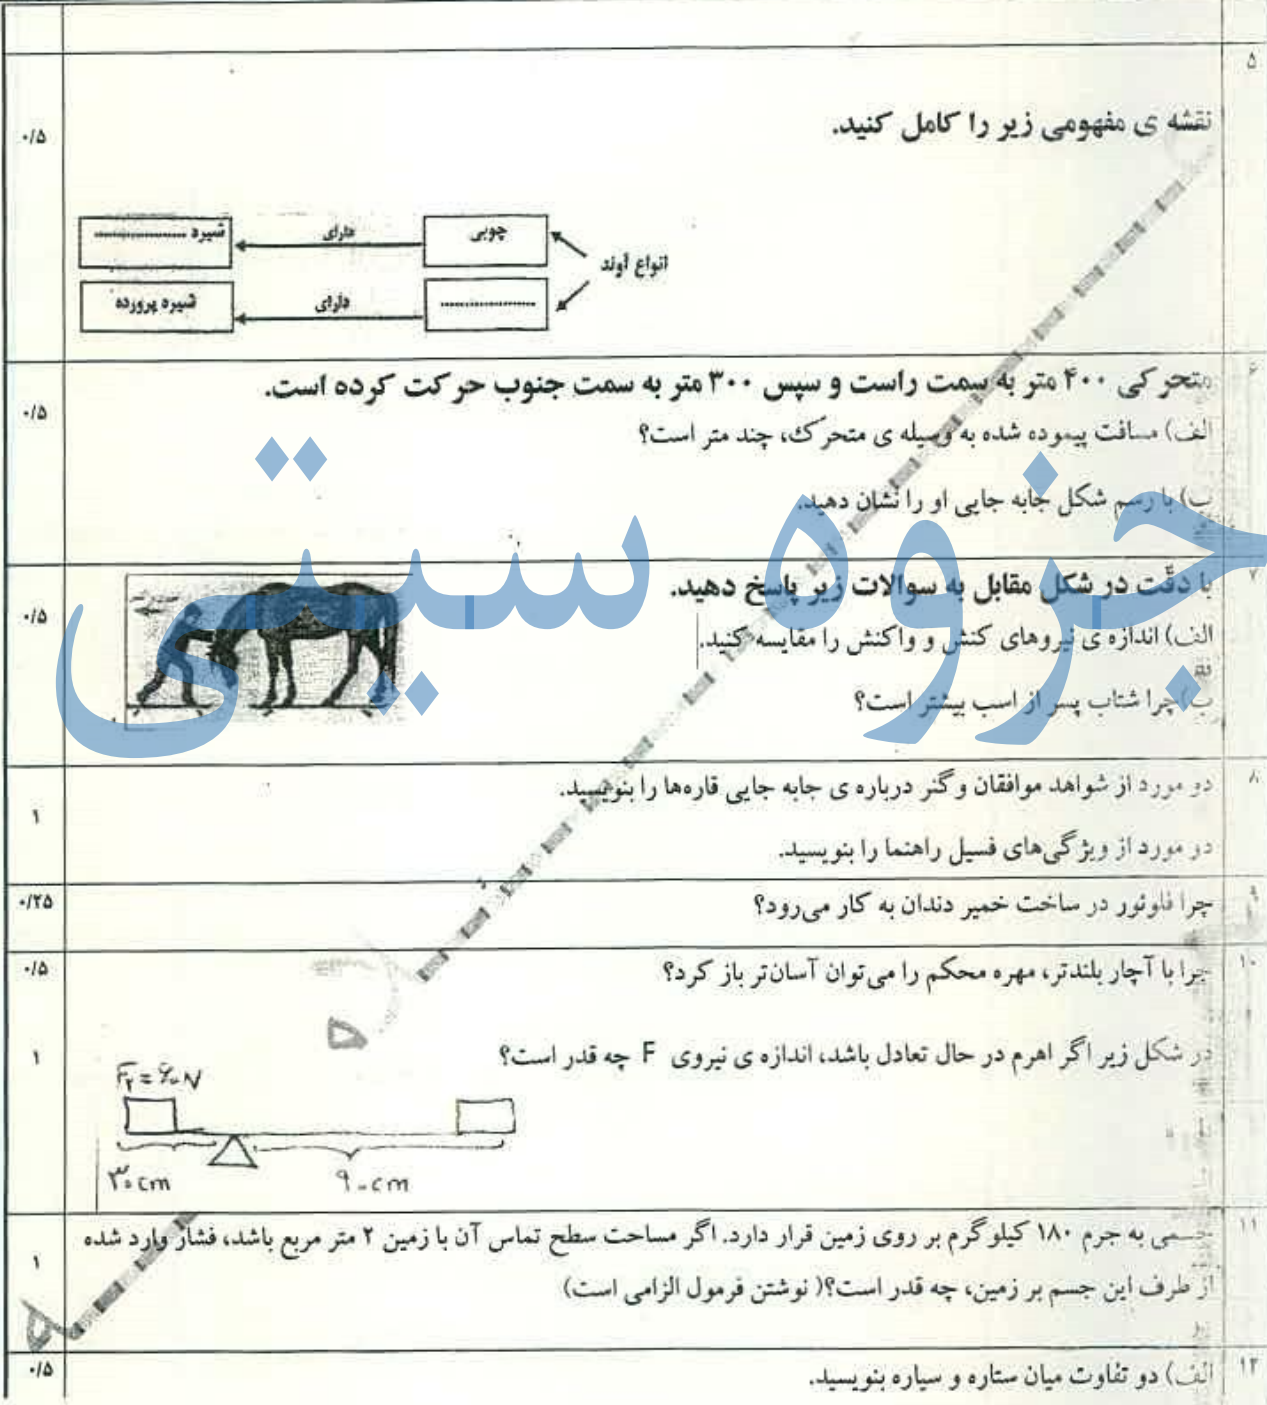 ۵
نقشه ی مفهومی زیر را کامل کنید.
۰/۵
انواع آوند
چوبی
دارای
شیره ....................
....................
دارای
شیره پرورده
۶
متحرکی ۴۰۰ متر به سمت راست و سپس ۳۰۰ متر به سمت جنوب حرکت کرده است.
۰/۵
الف) مسافت پیموده شده به وسیله ی متحرک، چند متر است؟
ب) با رسم شکل جابه جایی او را نشان دهید.
جزوه سیتی
۷
با دقّت در شکل مقابل به سوالات زیر پاسخ دهید.
۰/۵
الف) اندازه ی نیروهای کنش و واکنش را مقایسه کنید.
ب) چرا شتاب پسر از اسب بیشتر است؟
۸
دو مورد از شواهد موافقان وگنر درباره ی جابه جایی قاره‌ها را بنویسید.
۱
دو مورد از ویژگی‌های فسیل راهنما را بنویسید.
۹
چرا فلوئور در ساخت خمیر دندان به کار می‌رود؟
۰/۲۵
۱۰
چرا با آچار بلندتر، مهره محکم را می‌توان آسان‌تر باز کرد؟
۰/۵
در شکل زیر اگر اهرم در حال تعادل باشد، اندازه ی نیروی F چه قدر است؟
۱
۳۰ cm
۹۰ cm
۱۱
جسمی به جرم ۱۸۰ کیلوگرم بر روی زمین قرار دارد. اگر مساحت سطح تماس آن با زمین ۲ متر مربع باشد، فشار وارد شده
۱
از طرف این جسم بر زمین، چه قدر است؟( نوشتن فرمول الزامی است)
۱۲
الف) دو تفاوت میان ستاره و سیاره بنویسید.
۰/۵